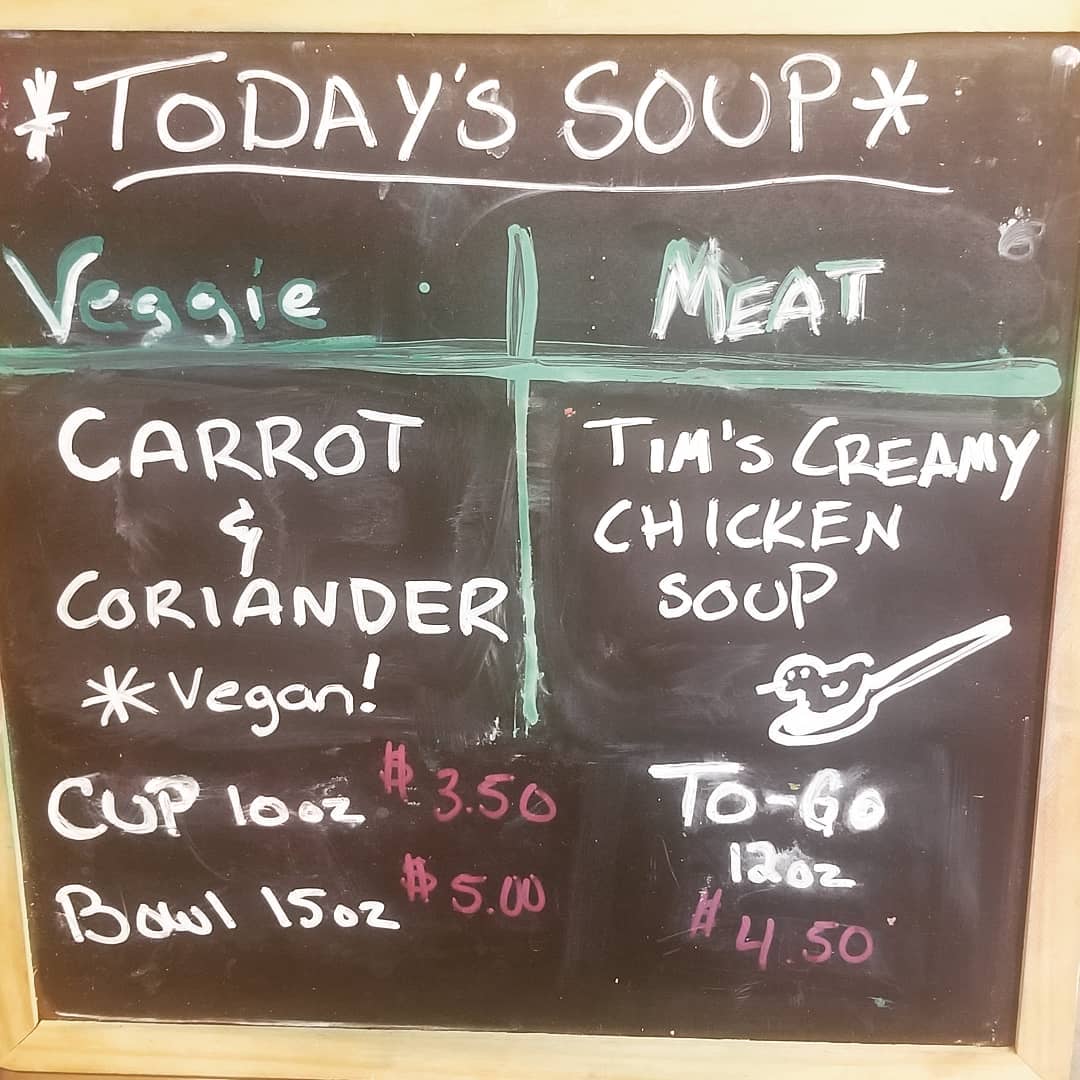 *TODAY'S SOUP*
Veggie
MEAT
CARROT
&
CORIANDER
*Vegan!
TIM'S CREAMY
CHICKEN
SOUP
CUP 10oz $3.50
Bowl 15oz $5.00
TO-GO
12oz
$4.50